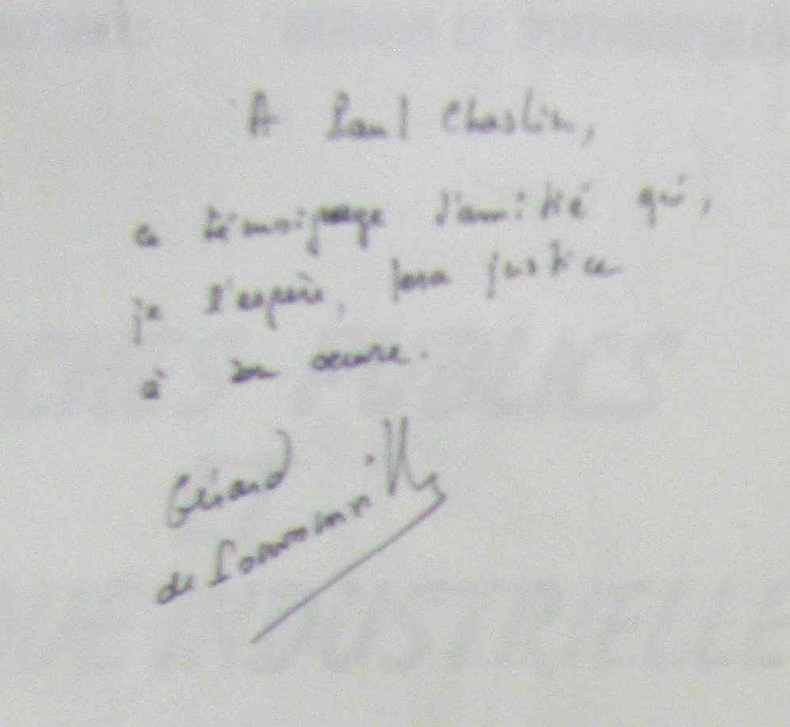 A Paul Chaslin,
ce témoignage d'amitié qui,
je l'espère, fera justice
à son oeuvre.
Gérard
de
PUBLICS
INDUSTRIELLE